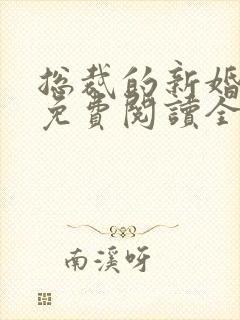 总裁的新婚
免費閱讀全
南溪呀